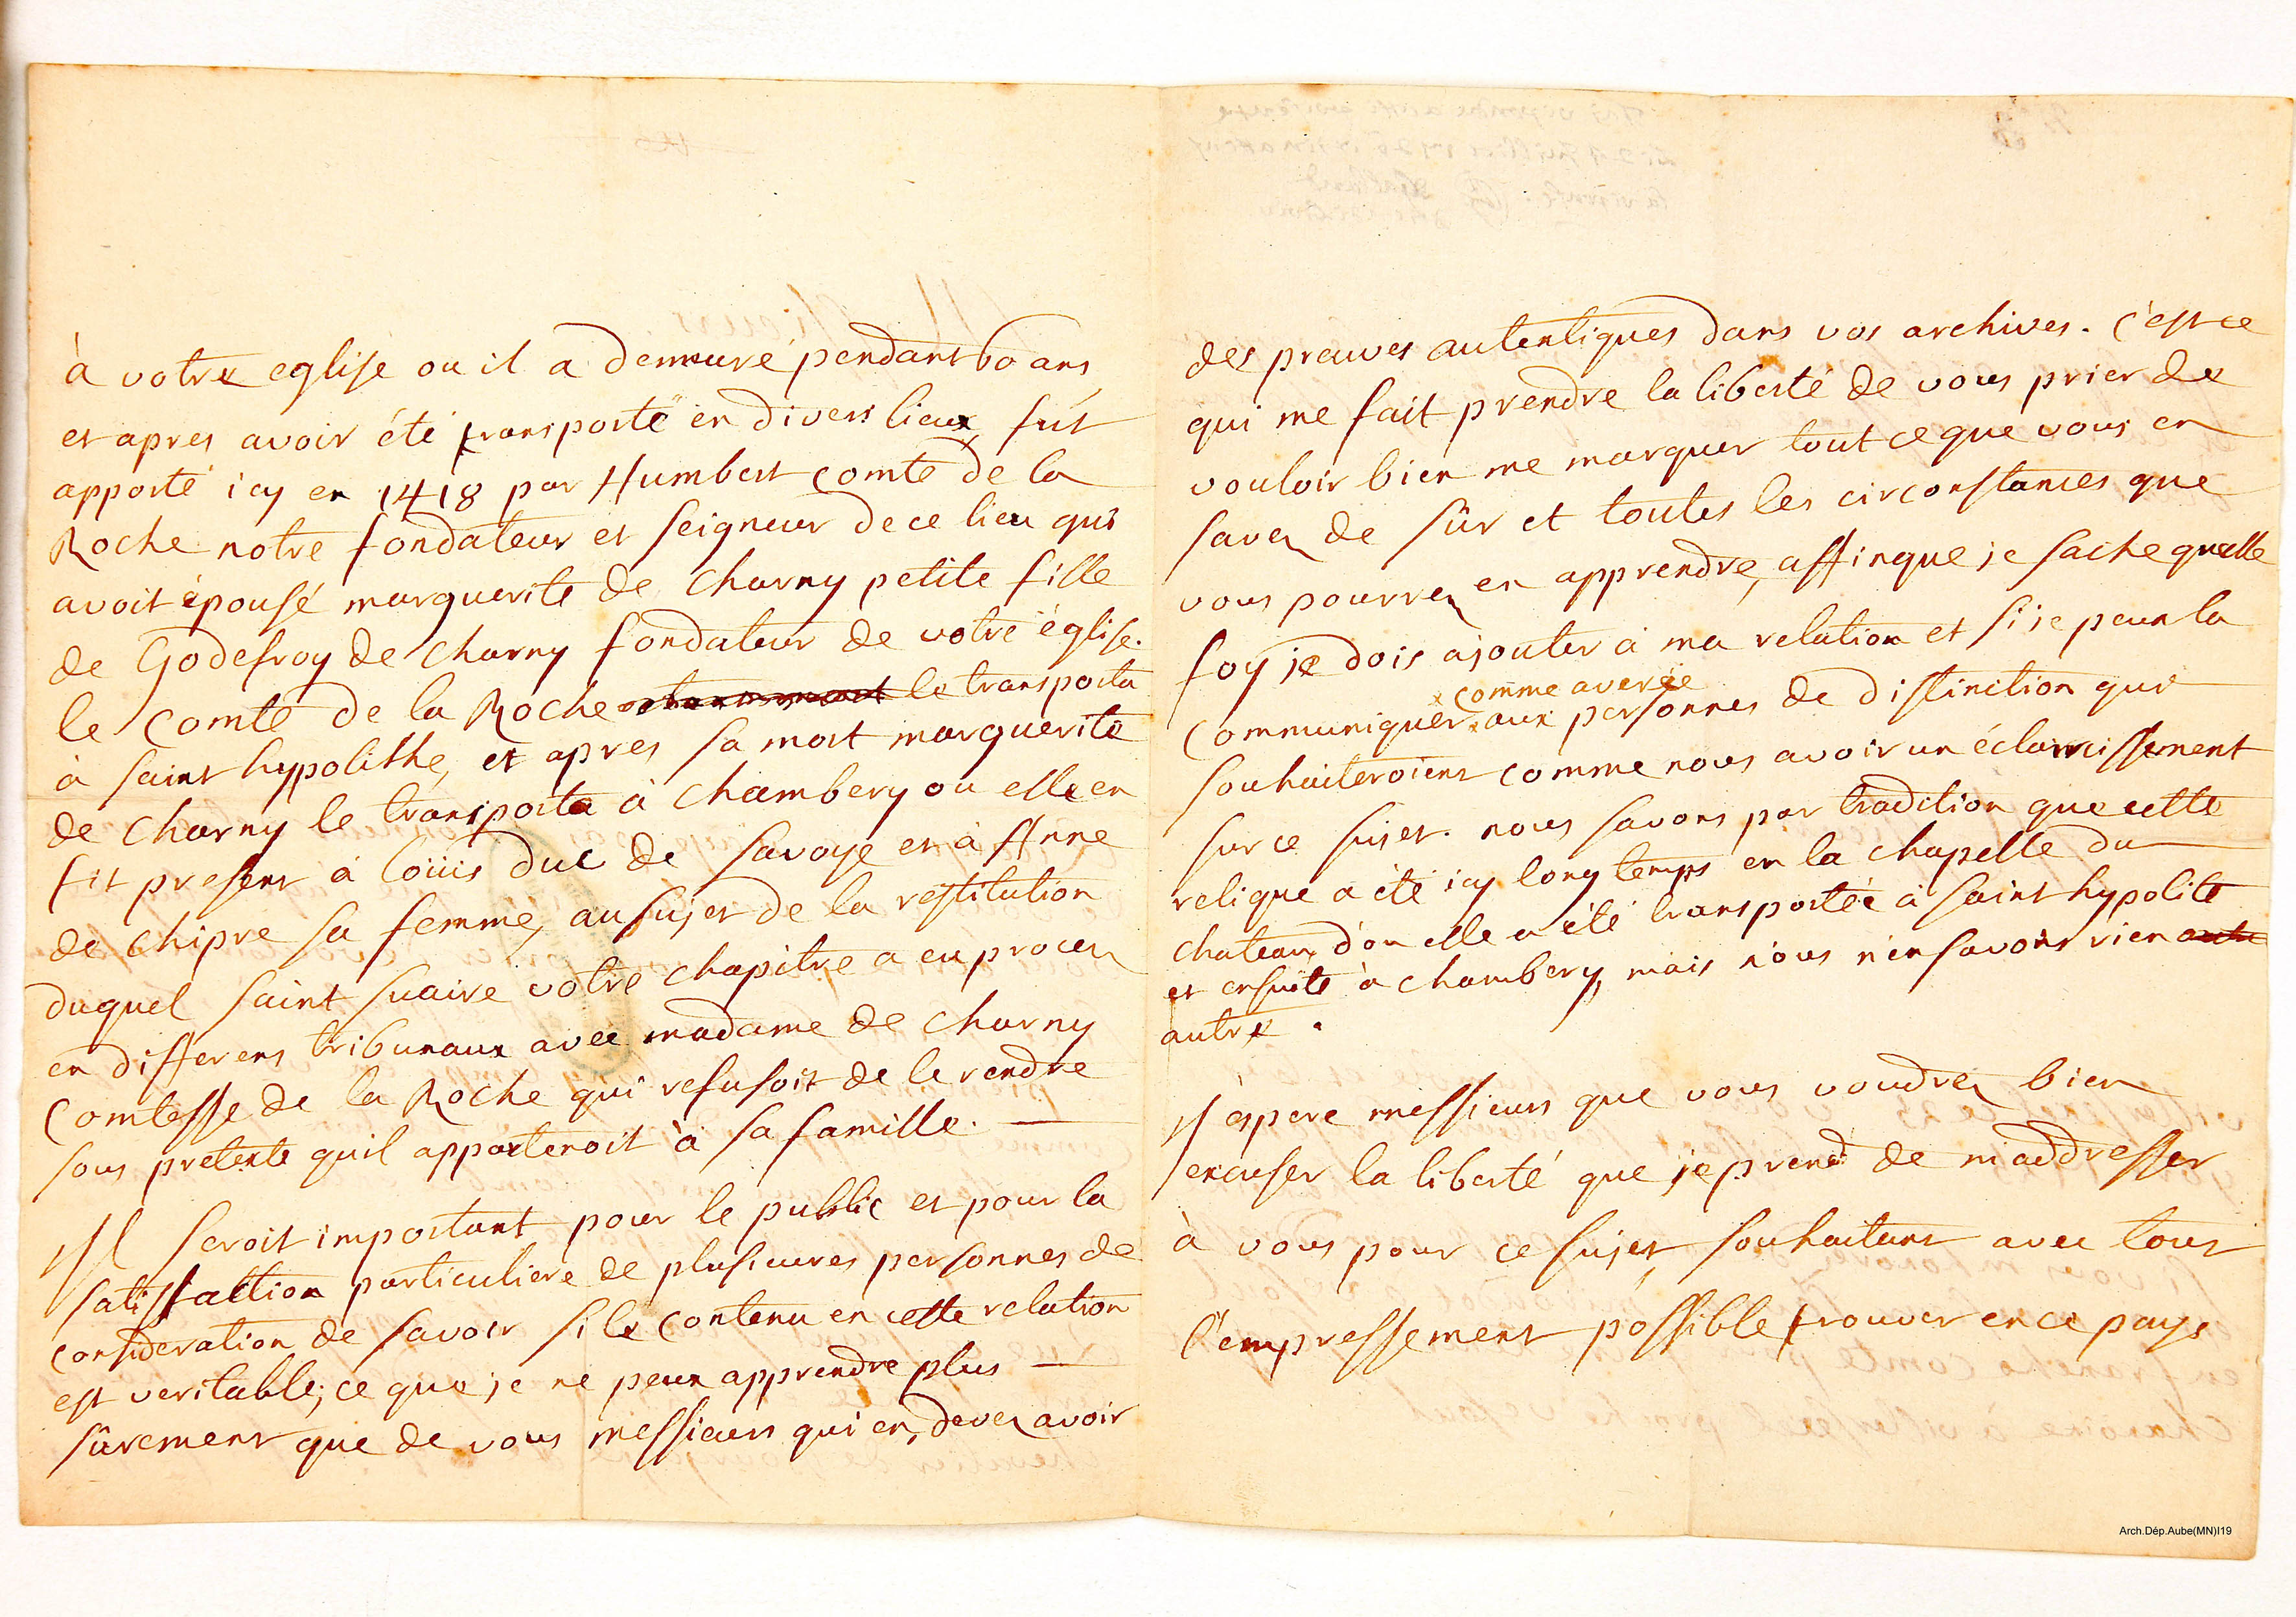 à votre eglise ou il a demeuré pendant 60 ans
et apres avoir été transporté en divers lieux fut
apporté icy en 1418 par Humbert comte de la
Roche notre fondateur et seigneur de ce lieu qui
avoit épousé marguerite de Charny petite fille
de Godefroy de Charny fondateur de votre église.
le Comte de la Roche le transporta
à saint hypolithe, et apres sa mort marguerite
de Charny le transporta à Chambery ou elle en
fit present à Loüis duc de Savoye et à Anne
de Chipre sa femme, au sujet de la restitution
duquel saint suaire votre chapitre a eu procez
en differens tribunaux avec madame de Charny
Comtesse de la Roche qui refusoit de le rendre
sous pretexte quil appartenoit à sa famille.
Il seroit important pour le public et pour la
satisfaction particuliere de plusieures personnes de
consideration de savoir si le contenu en cette relation
est veritable; ce que je ne peux apprendre plus
sûrement que de vous messieurs qui en devez avoir
des preuves autentiques dans vos archives. C'est ce
qui me fait prendre la liberté de vous prier de
vouloir bien me marquer tout ce que vous en
savez de sûr et toutes les circonstances que
vous pourrez en apprendre, affinque je sache quelle
foy je dois ajouter à ma relation et si je peux la
comme averée
Communiquer aux personnes de distinction qui
souhaiteroient comme nous avoir un éclaircissement
sur ce sujet. nous savons par tradition que cette
relique a été icy long temps en la chapelle du
chateau d'ou elle a été transportée à saint hypolite
et ensuite à Chambery, mais nous n'en savons rien autre
autre.
J'éspere messieurs que vous voudrez bien
excuser la liberté que je prend de m'addresser
à vous pour ce sujet, souhaitant avec tout
l'empressement possible trouver en ce pays
Arch.Dép.Aube(MN)I19